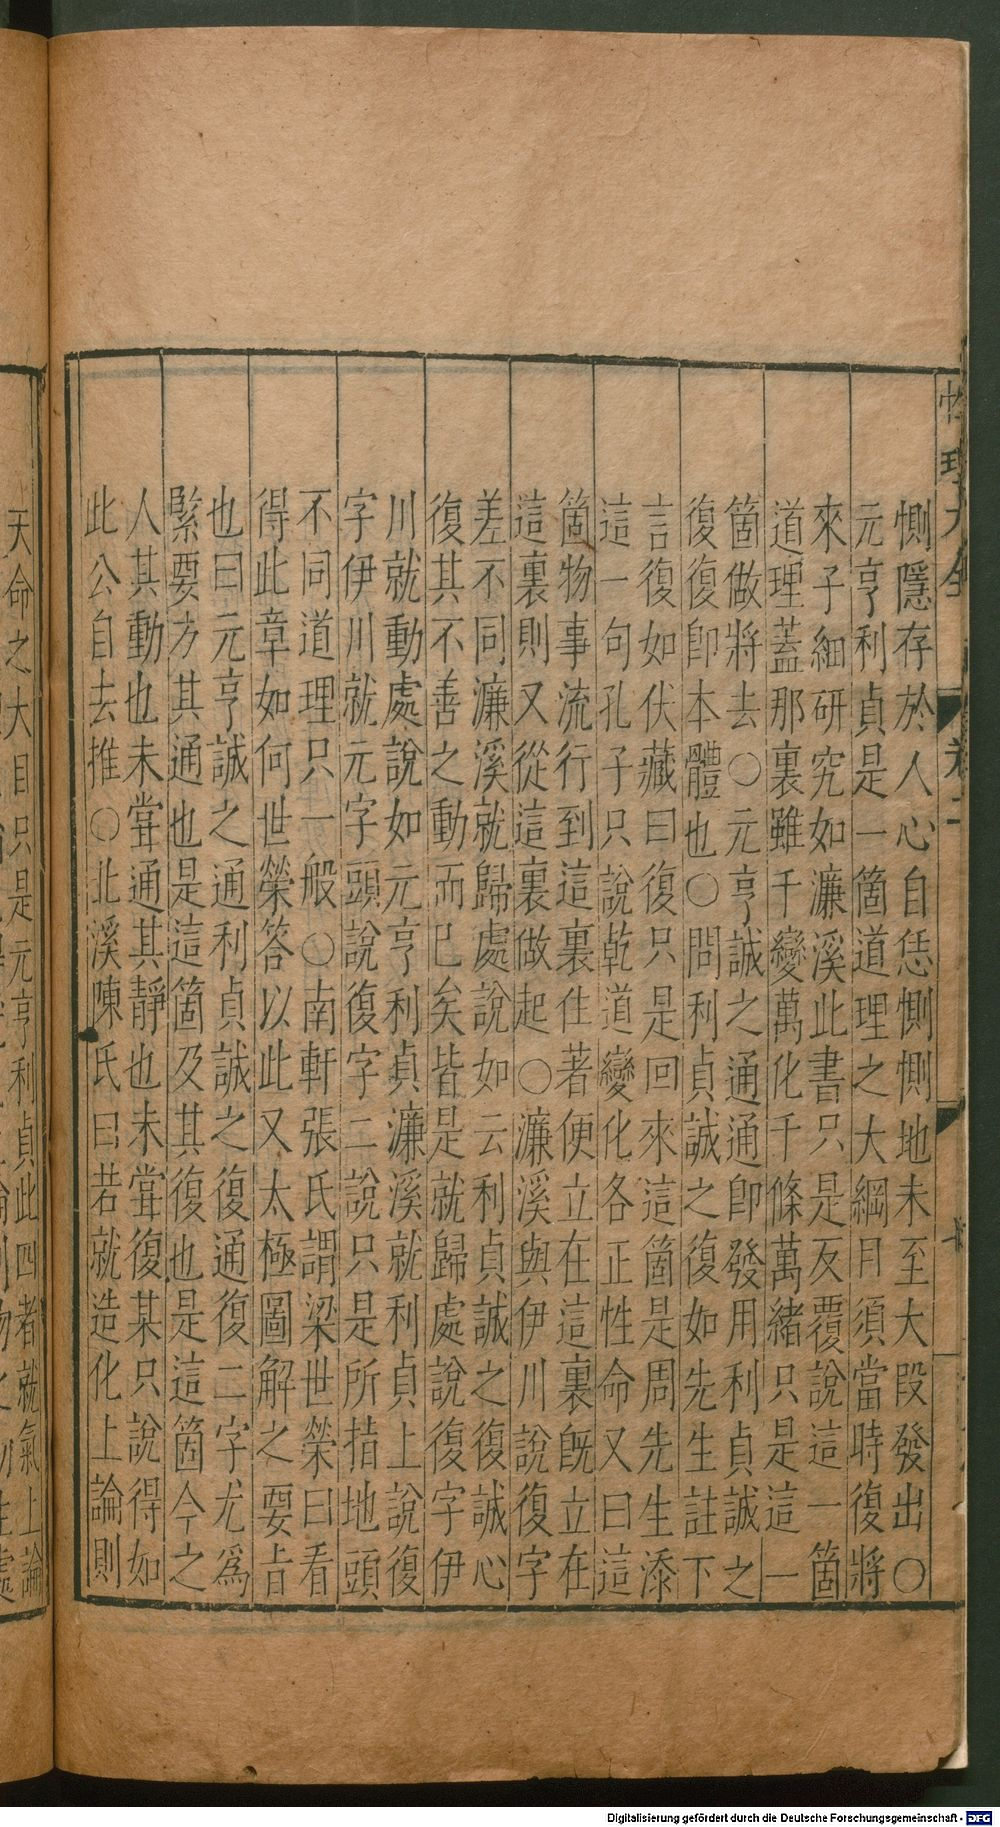 性理大全
卷二
惻隱存於人心自恁惻惻地未至大段發出○
元亨利貞是一箇道理之大綱目須當時復將
來子細研究如濂溪此書只是反覆說這一箇
道理蓋那裏雖千變萬化千條萬緒只是這一
箇做將去○元亨誠之通通卽發用利貞誠之
復復卽本體也○問利貞誠之復如先生註下
言復如伏藏曰復只是回來這箇是周先生添
這一句孔子只說乾道變化各正性命又曰這
箇物事流行到這裏住著便立在這裏旣立在
這裏則又從這裏做起○濂溪與伊川說復字
差不同濂溪就歸處說如云利貞誠之復誠心
復其不善之動而巳矣皆是就歸處說復字伊
川就動處說如元亨利貞濂溪就利貞上說復
字伊川就元字頭說復字二說只是所指地頭
不同道理只一般○南軒張氏謂梁世榮曰看
得此章如何世榮答以此又太極圖解之要㫖
也曰元亨誠之通利貞誠之復通復二字尤爲
緊要方其通也是這箇及其復也是這箇今之
人其動也未甞通其靜也未甞復某只說得如
此公自去推○北溪陳氏曰若就造化上論則
天命之大目只是元亨利貞此四者就氣上論
Digitalisierung gefördert durch die Deutsche Forschungsgemeinschaft - DFG